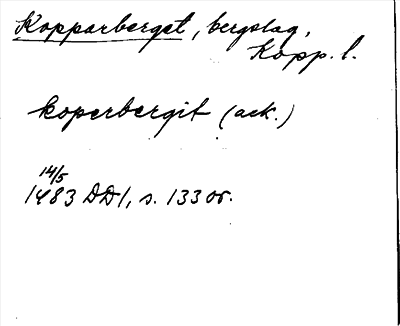 Kopparberget, bergslag,
Kopp. l.
koperbergit (ack.)
14/5
1483 DD 1, s. 133 or.